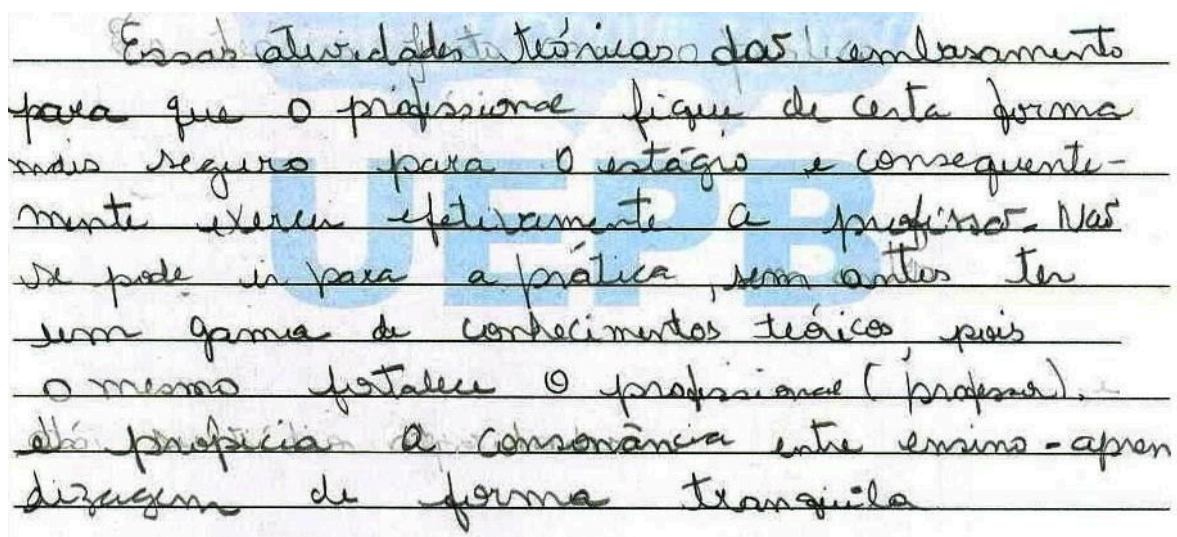 Essas atividades teóricas dão embasamento
para que o profissional fique de certa forma
mais seguro para o estágio e consequente-
mente exercer efetivamente a profissão. Não
se pode ir para a prática, sem antes ter
um gama de conhecimentos teóricos, pois
o mesmo fortalece o profissional (professor),
e propicia a consonância entre ensino-apren
dizagem de forma tranquila
UEPB